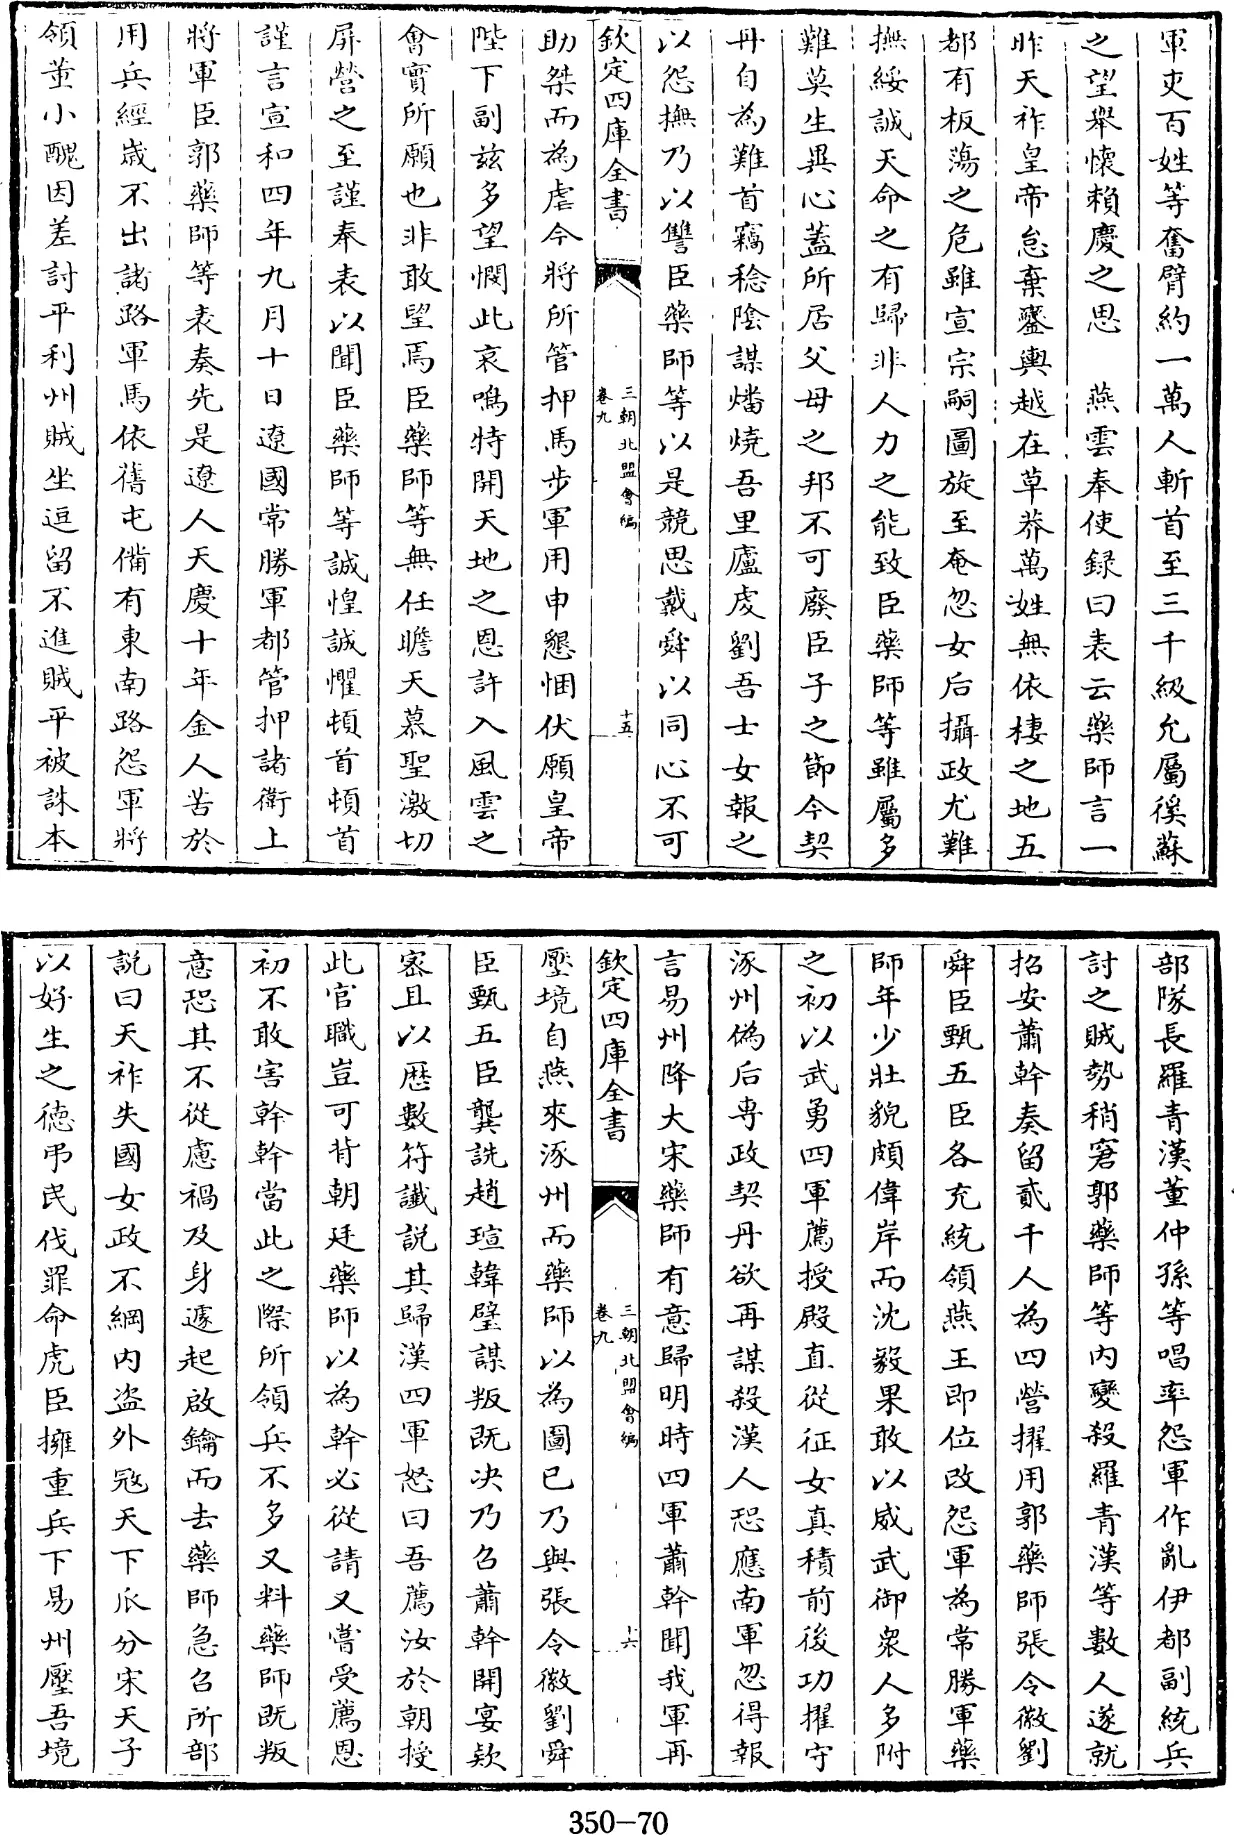 軍吏百姓等奮臂約一萬人斬首至三千級允屬徯蘇
之望舉懷賴慶之思　燕雲奉使録曰表云藥師言一
昨天祚皇帝怠棄鑾輿越在草莽萬姓無依棲之地五
都有板蕩之危雖宣宗嗣圖旋至奄忽女后攝政尤難
撫綏誠天命之有歸非人力之能致臣藥師等雖屬多
難莫生異心蓋所居父母之邦不可廢臣子之節今契
丹自為難首竊稔陰謀燔燒吾里廬虔劉吾士女報之
以怨撫乃以讐臣藥師等以是競思戴舜以同心不可
欽定四庫全書
三朝北盟會編
卷九
十五
助桀而為虐今將所管押馬步軍用申懇悃伏願皇帝
陛下副兹多望憫此哀鳴特開天地之恩許入風雲之
會實所願也非敢望焉臣藥師等無任瞻天慕聖激切
屏營之至謹奉表以聞臣藥師等誠惶誠懼頓首頓首
謹言宣和四年九月十日遼國常勝軍都管押諸衛上
將軍臣郭藥師等表奏先是遼人天慶十年金人苦於
用兵經歲不出諸路軍馬依舊屯備有東南路怨軍將
領董小醜因差討平利州賊坐逗留不進賊平被誅本
部隊長羅青漢董仲孫等唱率怨軍作亂伊都副統兵
討之賊勢稍窘郭藥師等内變殺羅青漢等數人遂就
招安蕭幹奏留貳千人為四營擢用郭藥師張令徽劉
舜臣甄五臣各充統領燕王即位改怨軍為常勝軍藥
師年少壯貌頗偉岸而沈毅果敢以威武御衆人多附
之初以武勇四軍薦授殿直從征女真積前後功擢守
涿州偽后専政契丹欲再謀殺漢人恐應南軍忽得報
言易州降大宋藥師有意歸明時四軍蕭幹聞我軍再
欽定四庫全書
三朝北盟會編
卷九
十六
壓境自燕來涿州而藥師以為圖已乃與張令徽劉舜
臣甄五臣龔詵趙瑄韓璧謀叛既决乃召蕭幹開宴欵
宻且以歴數符讖説其歸漢四軍怒曰吾薦汝於朝授
此官職豈可背朝廷藥師以為幹必從請又嘗受薦恩
初不敢害幹幹當此之際所領兵不多又料藥師既叛
意恐其不從慮禍及身遽起啟鑰而去藥師急召所部
說曰天祚失國女政不綱内盗外冦天下瓜分宋天子
以好生之德弔民伐罪命虎臣擁重兵下易州壓吾境
350-70